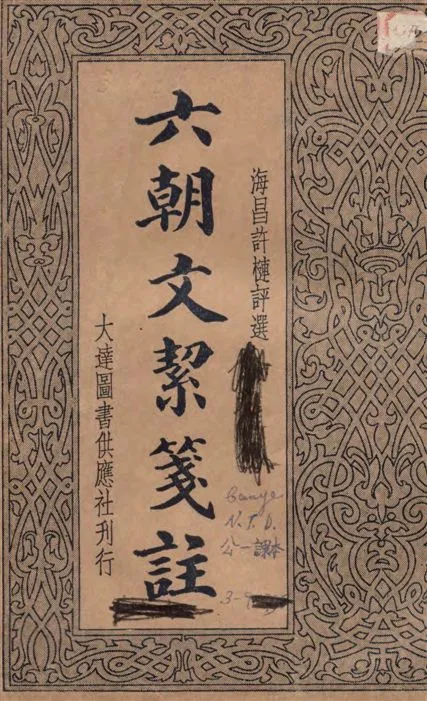 海昌許槤評選
六朝文絜箋註
大達圖書供應社刊行
N.T.U.
公一課本